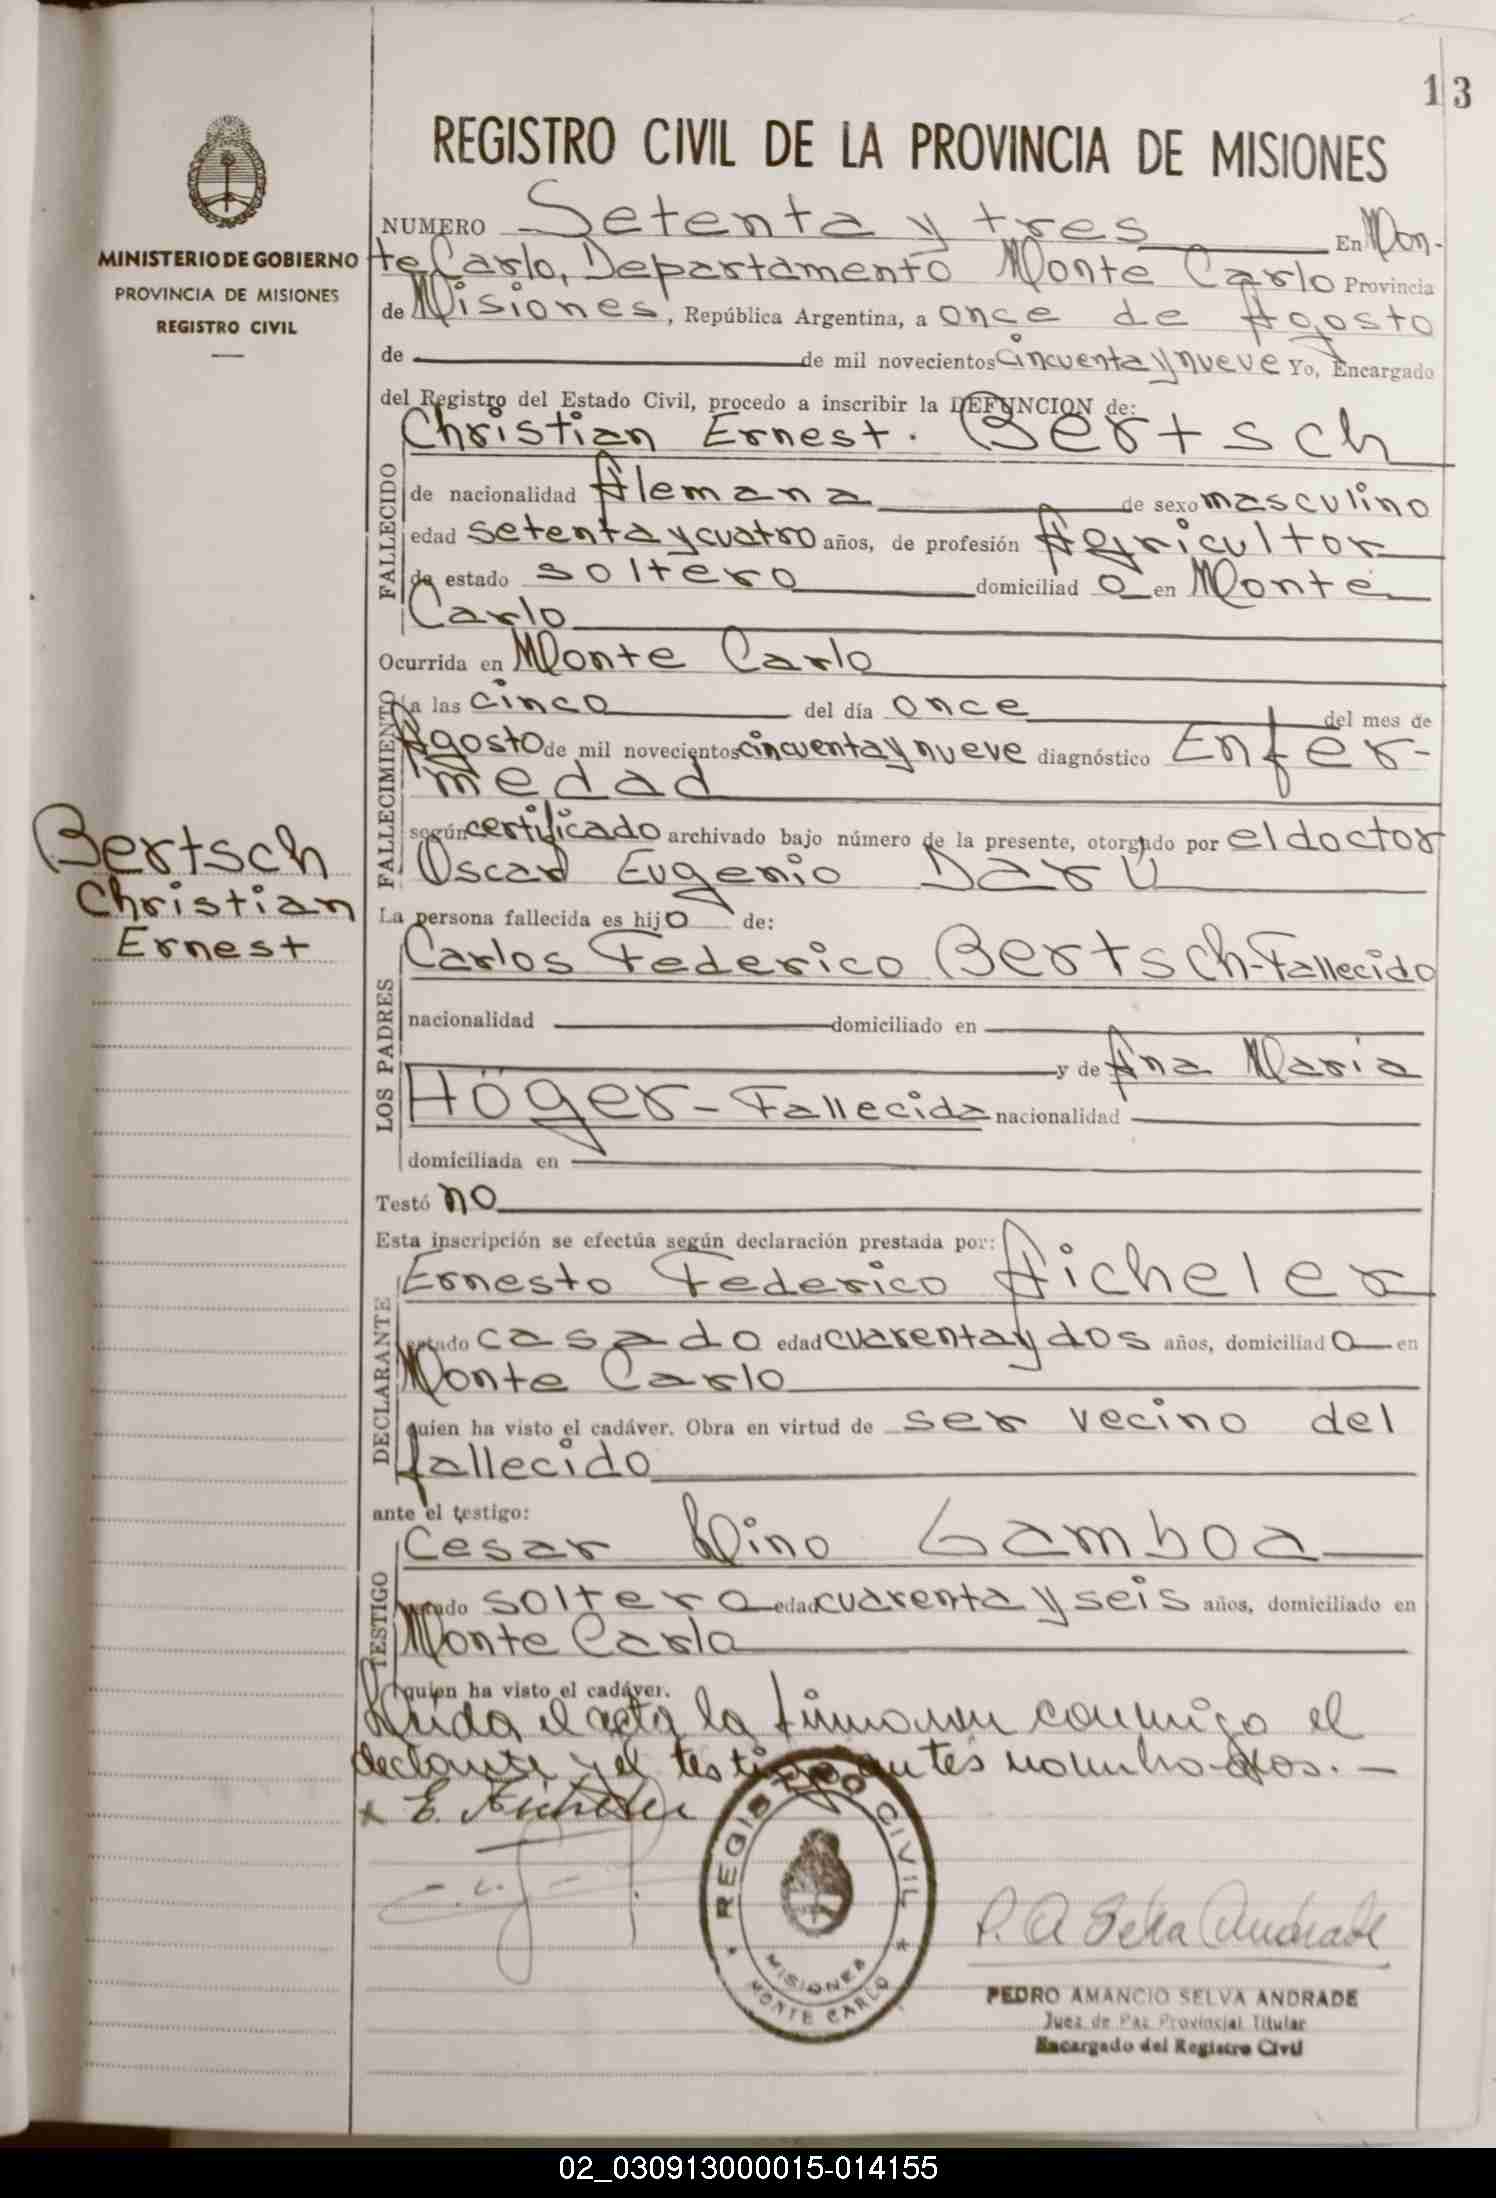 13
REGISTRO CIVIL DE LA PROVINCIA DE MISIONES
MINISTERIO DE GOBIERNO
PROVINCIA DE MISIONES
REGISTRO CIVIL
NUMERO Setenta y tres En Mon-
te Carlo, Departamento Monte Carlo Provincia
de Misiones, República Argentina, a once de Agosto
de de mil novecientos cincuenta y nueve Yo, Encargado
del Registro del Estado Civil, procedo a inscribir la DEFUNCION de:
Christian Ernest. Bertsch
FALLECIDO
de nacionalidad Alemana de sexo masculino
edad setenta y cuatro años, de profesión Agricultor
de estado soltero domiciliado en Monte
Carlo
Ocurrida en Monte Carlo
FALLECIMIENTO
a las cinco del día once del mes de
Agosto de mil novecientos cincuenta y nueve diagnóstico Enfer-
medad
según certificado archivado bajo número de la presente, otorgado por el doctor
Oscar Eugenio Darú
Bertsch
Christian
Ernest
La persona fallecida es hijo de:
LOS PADRES
Carlos Federico Bertsch-Fallecido
nacionalidad domiciliado en
y de Ana Maria
Höger - Fallecida nacionalidad
domiciliada en
Testó no
Esta inscripción se efectúa según declaración prestada por:
DECLARANTE
Ernesto Federico Aicheler
estado casado edad cuarenta y dos años, domiciliado en
Monte Carlo
quien ha visto el cadáver. Obra en virtud de ser vecino del
fallecido
ante el testigo:
TESTIGO
Cesar Nino Gamboa
estado soltero edad cuarenta y seis años, domiciliado en
Monte Carlo
quien ha visto el cadáver.
Leida el acta la firmaron conmigo el
declarante y el testigo antes nombrados. —
E. Aicheler
REGISTRO CIVIL
MISIONES
MONTE CARLO
P. A Selva Andrade
PEDRO AMANCIO SELVA ANDRADE
Juez de Paz Provincial Titular
Encargado del Registro Civil
02_030913000015-014155